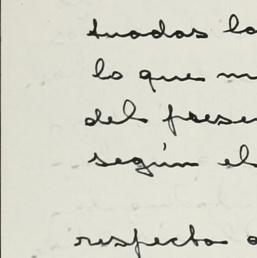 tuadas lo
lo que m
del presen
según el
respecto a